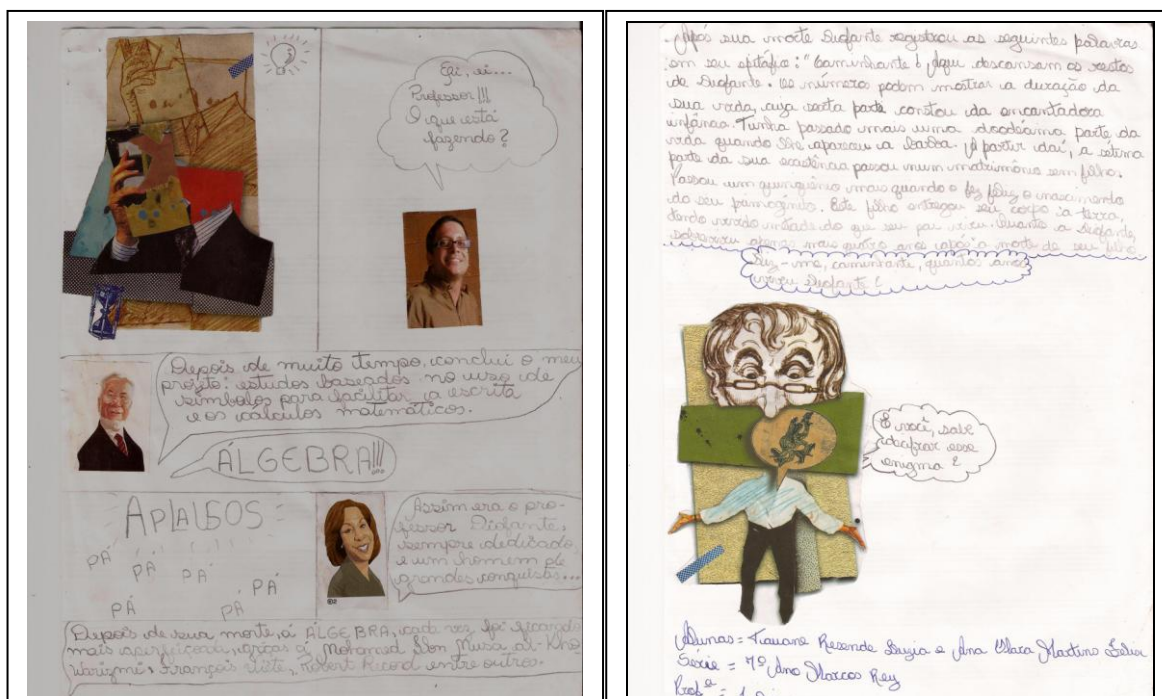 Ei, ei...
Professor!!!
O que está
fazendo?
Depois de muito tempo, conclui o meu
projeto: estudos baseados no uso de
símbolos para facilitar a escrita
e os cálculos matemáticos.
ÁLGEBRA!!!
APLAUSOS
PÁ
PÁ
PÁ
PÁ
PÁ
PÁ
Assim era o pro-
fessor Diofante,
sempre dedicado
e um homem de
grandes conquistas...
Depois de sua morte, a ÁLGEBRA, cada vez foi ficando
mais aperfeiçoada, graças a Mohamed Ibn Musa al-Kho
warizmi, François Viète, Robert Record entre outros.
Após sua morte Diofante registrou as seguintes palavras
em seu epitáfio: "Caminhante! Aqui descansam os restos
de Diofante. Os números podem mostrar a duração da
sua vida, cuja sexta parte constou da encantadora
infância. Tinha passado mais uma duodécima parte da
vida quando lhe apareceu a barba. A partir daí, a sétima
parte da sua existência passou num matrimônio sem filho.
Passou um quinquênio mais quando o fez feliz o nascimento
do seu primogênito. Este filho entregou seu corpo à terra,
tendo vivido metade do que seu pai viveu. Quanto a Diofante,
sobreviveu apenas mais quatro anos após a morte de seu filho
Diz-me, caminhante, quantos anos
viveu Diofante?
E você, sabe
decifrar esse
enigma?
Alunas = Resende e Ana Clara Martino
Série = 7º Ano Marcos Rey
Profª =